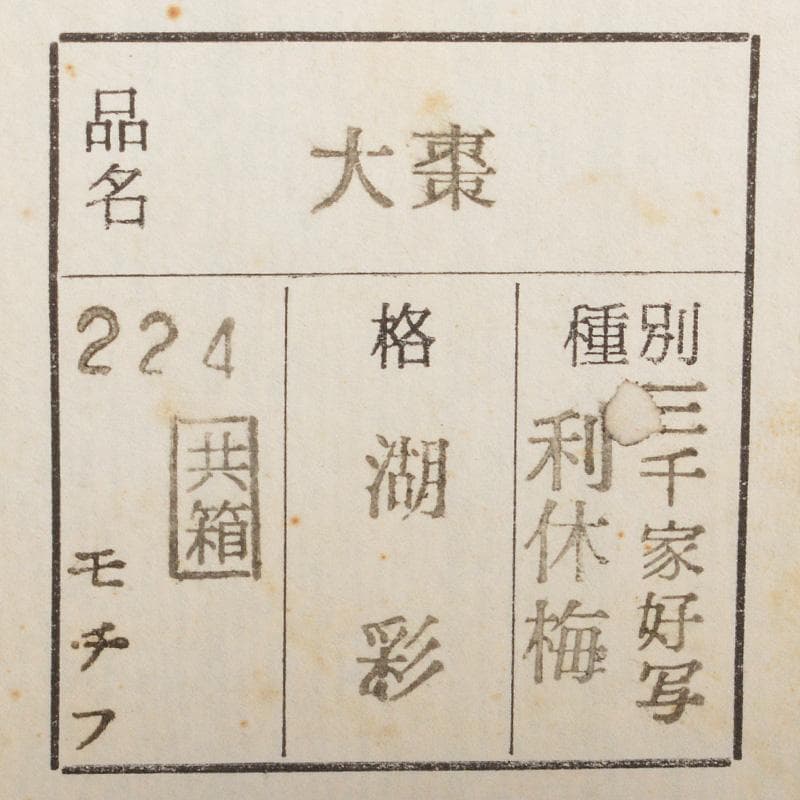 品名
大棗
種別
三千家好写
利休梅
格
湖彩
224
共箱
モチフ